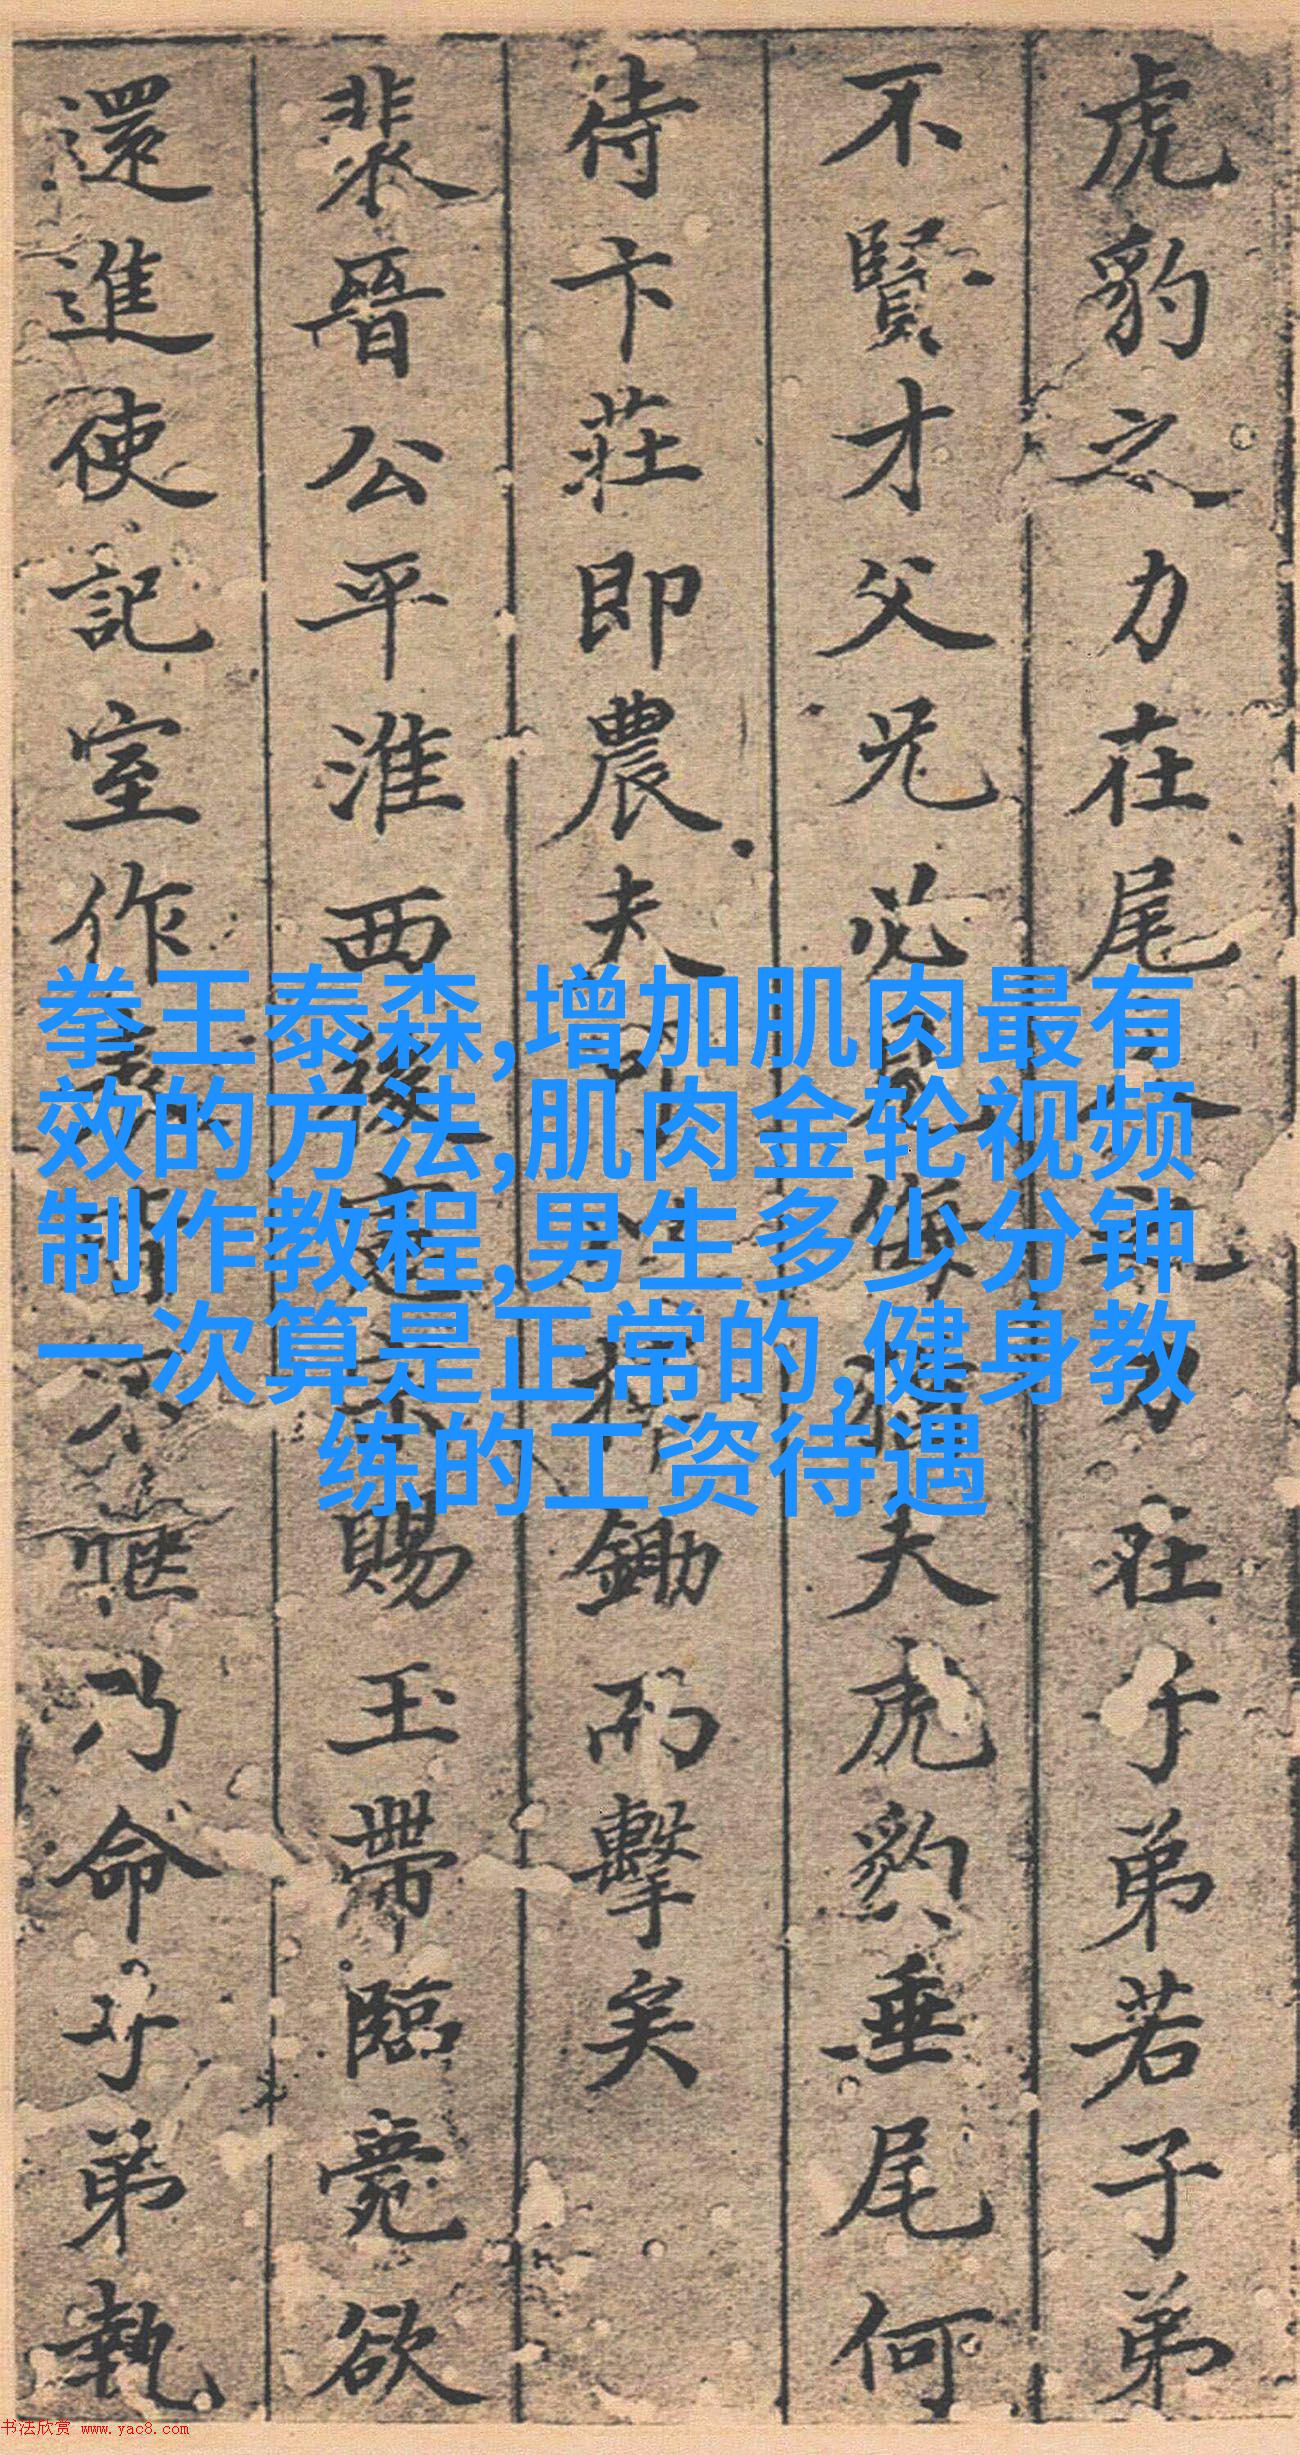 虎豹之力在尾
壮子弟若子弟
不賢才父兄必
侮
夫虎豹垂尾何
待卞莊即農夫
鋤而擊矣
裴晉公平淮西
賜玉帶臨薨欲
還進使記室作
乃命子弟執
拳王泰森,增加肌肉最有
效的方法,肌肉金轮视频
制作教程,男生多少分钟
一次算是正常的,健身教
练的工资待遇
书法欣赏 www.yac8.com